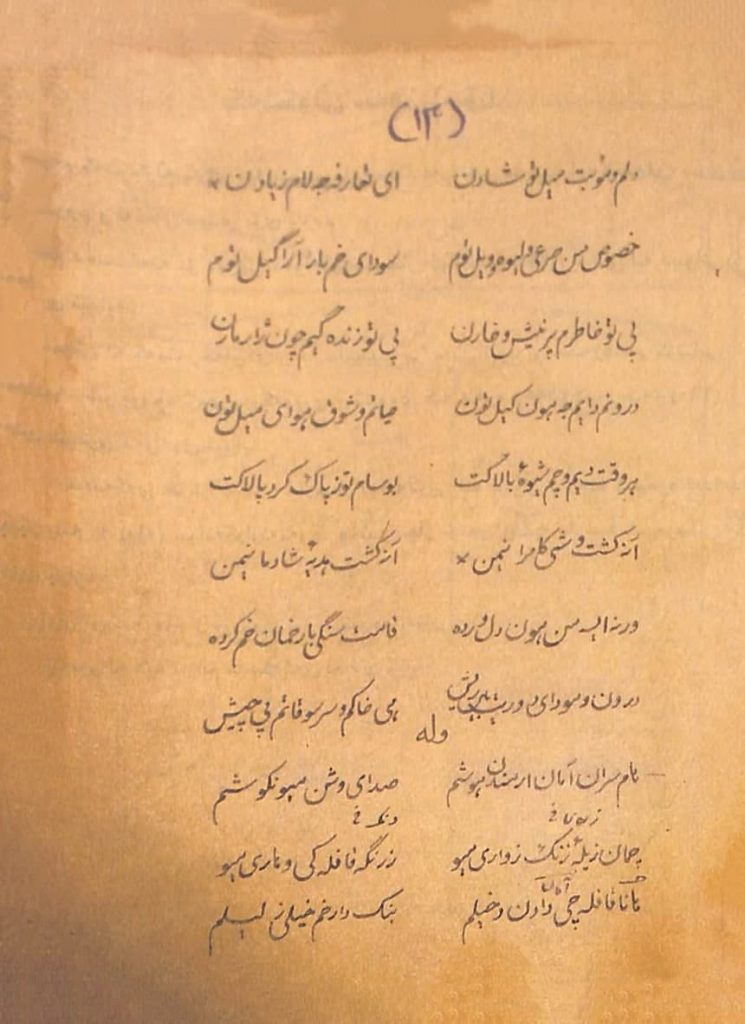 (۱۳)
دلم و نوبت میل تو شادن ای تعارفه جه لام زیادن ×
خصوص من صرعی و لیوه و ویل توم سودای خم بار آراگیل توم
پی تو خاطرم پر نیش و خارن پی تو زنده گیم چون ژار ماران
درونم دایم جه هون کیل تون حیاتم و شوق هوای میل تون
هر وقت دیم و چم شیوهٔ بالاکت بوسام توز پاک گرد پالاکت
آنه گشت و شی کامرانیمن × آنه گشت هدیهٔ شادمانیمن
ورنه ایسه من هون دل ورده قامت سنگی بار خمان خم کرده
درون و سودای دوریت می خاکم و سر سوقاتم پی چیش
وله
نام سران آمان ارمندان هوشم صدای وشن میو نکو شم
دنگ خ
چمان زیلهٔ زنگ زواری میو زرنگه قافله کی و ماری میو
آمان
مانا قافله چی دادن دخیلم بنک دار خم خیلی ز لیلم